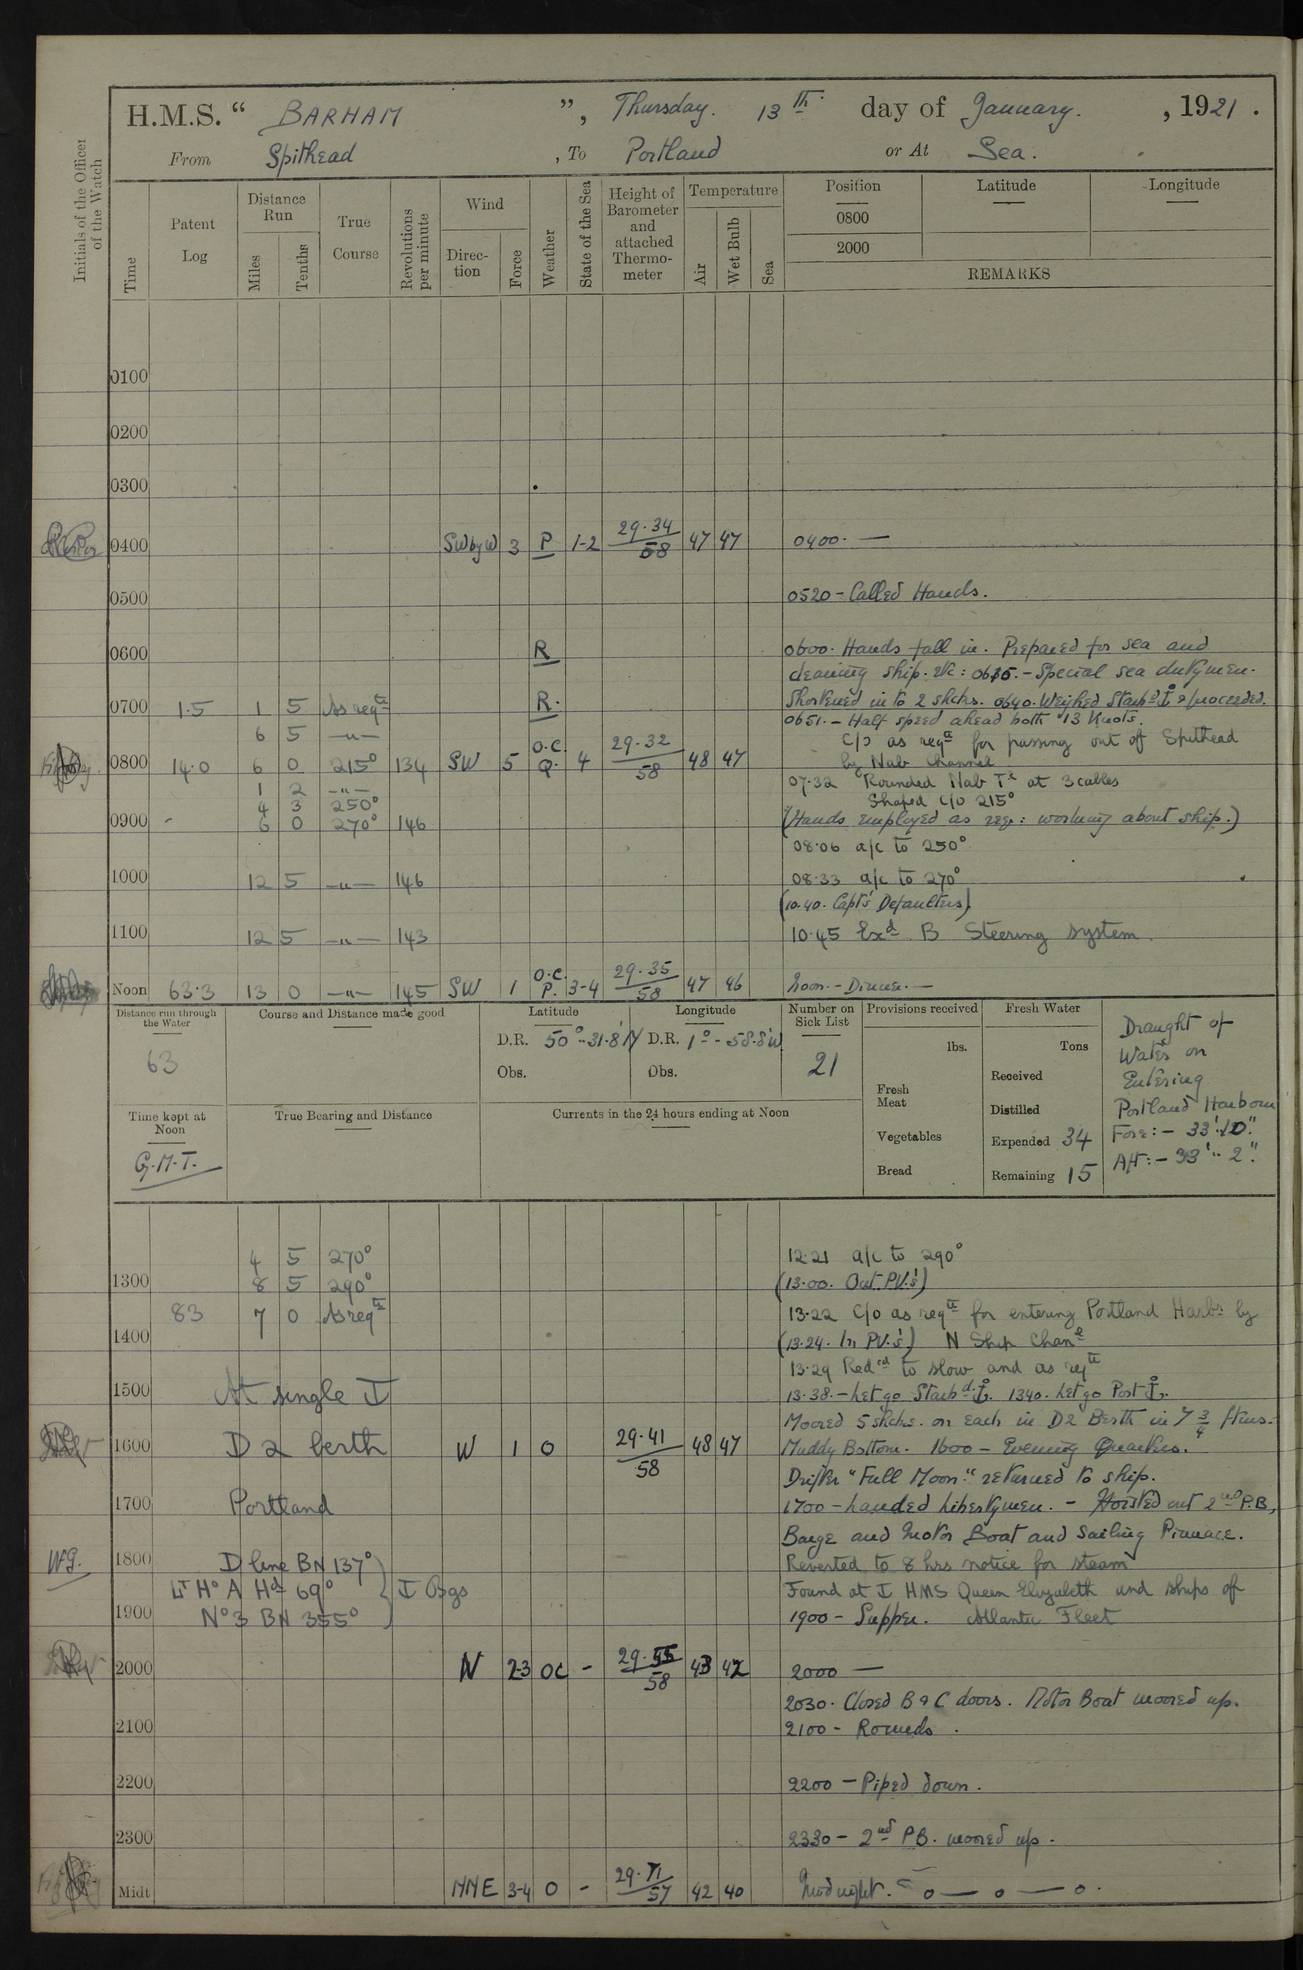 H.M.S. “ BARHAM ”, Thursday. 13th day of January. , 1921.
From Spithead , To Portland or At Sea.
Initials of the Officer of the Watch
Time
Patent Log
Distance Run
Miles
Tenths
True Course
Revolutions per minute
Wind
Direc-tion
Force
Weather
State of the Sea
Height of Barometer and attached Thermo-meter
Temperature
Air
Wet Bulb
Sea
Position
0800
2000
Latitude
Longitude
REMARKS
0100
0200
0300
0400 SW by W 3 P 1-2 29·34 58 47 47 0400. —
0500 0520 - Called Hands.
0600 R 0600. Hands fall in. Prepared for sea and
cleaning ship. etc: 0615. - Special sea dutymen.
Shortened in to 2 shcks. 0640. Weighed Starbd ⚓ & proceeded.
0700 1·5 1 5 As reqte R.
0651. - Half speed ahead both 13 Knots.
6 5 —"— C/o as reqte for passing out of Spithead
0800 14·0 6 0 215° 134 SW 5 O.C. Q. 4 29·32 58 48 47 by Nab Channel
1 2 —"— 07·32 Rounded Nab Tr at 3 cables
4 3 250° Shaped C/o 215°
0900 - 6 0 270° 146 (Hands employed as req: working about ship.)
08·06 a/c to 250°
1000 12 5 —"— 146 08·33 a/c to 270°
(10.40. Capt's Defaulters)
1100 12 5 —"— 143 10·45 Exd B Steering system.
Noon 63·3 13 0 —"— 145 SW 1 O.C. P. 3-4 29·35 58 47 46 Noon. - Dinner. —
Distance run through the Water
63
Course and Distance made good
Latitude
D.R. 50°-31·8'N
Obs.
Longitude
D.R. 1°-58·8'W
Obs.
Number on Sick List
21
Provisions received
lbs.
Fresh Meat
Vegetables
Bread
Fresh Water
Tons
Received
Distilled
Expended 34
Remaining 15
Draught of
Water on
Entering
Portland Harbour
Fore: - 33'·10".
Aft: - 33'·· 2".
Time kept at Noon
G.M.T.
True Bearing and Distance
Currents in the 24 hours ending at Noon
4 5 270° 12·21 a/c to 290°
1300 8 5 290° (13·00. Out PV.'s)
83 7 0 As reqte 13·22 C/o as reqte for entering Portland Harbr by
1400 (13·24. In PV.'s) N Ship Chanl
13·29 Redcd to slow and as reqte
1500 At single ⚓ 13·38. - Let go Starbd. ⚓. 1340. Let go Port ⚓.
Moored 5 shcks. on each in D2 Berth in 7 3/4 ftms.
1600 D 2 berth W 1 O 29·41 58 48 47 Muddy Bottom. 1600 - Evening Quarters.
Drifter "Full Moon" returned to ship.
1700 Portland 1700 - Landed libertymen. - Hoisted out 2nd P.B,
Barge and Motor Boat and Sailing Pinnace.
W.G. 1800 D line BN 137° Reverted to 8 hrs notice for steam
Lt Ho A Hd 69° } ⚓ Bgs Found at ⚓ HMS Queen Elizabeth and ships of
1900 No 3 BN 355° 1900 - Supper. Atlantic Fleet
2000 N 2-3 OC - 29·55 58 43 42 2000 —
2030. Closed B & C doors. Motor Boat moored up.
2100 2100 - Rounds.
2200 2200 - Piped down.
2300 2330 - 2nd PB. moored up.
Midt NNE 3-4 O - 29·71 57 42 40 Midnight.